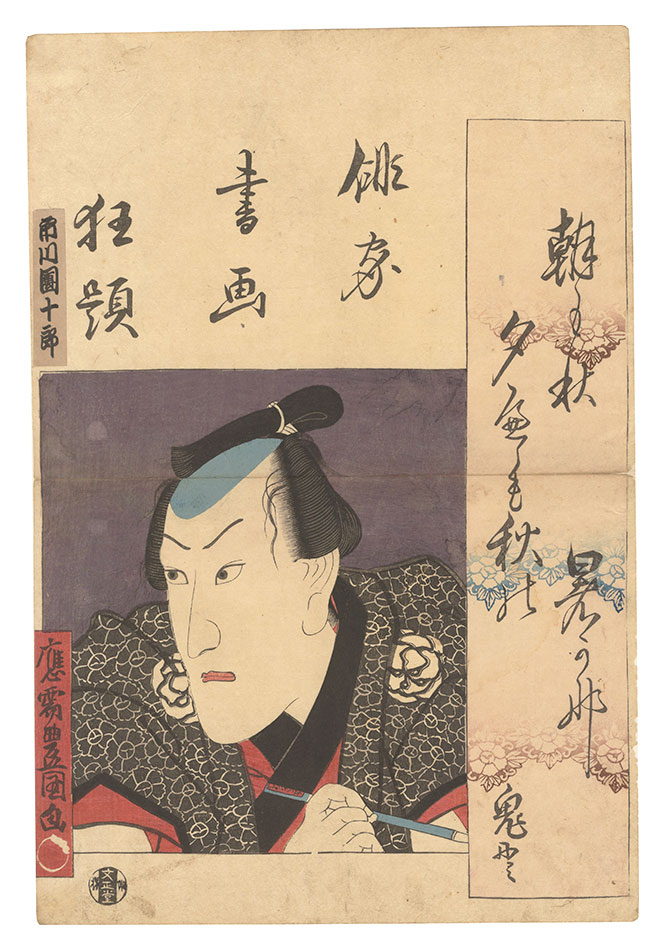 朝も秋
夕べも秋の
暑さかな
俳家
書画
狂題
市川團十郎
應需豊国画
文正堂